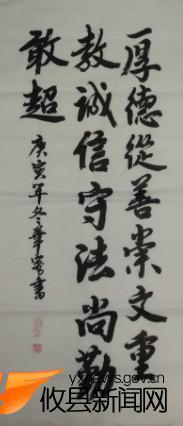 厚德從善崇文重
教誠信守法尚勤
敢超
庚寅年冬華寫書
yxnews.gov.cn
攸县新闻网